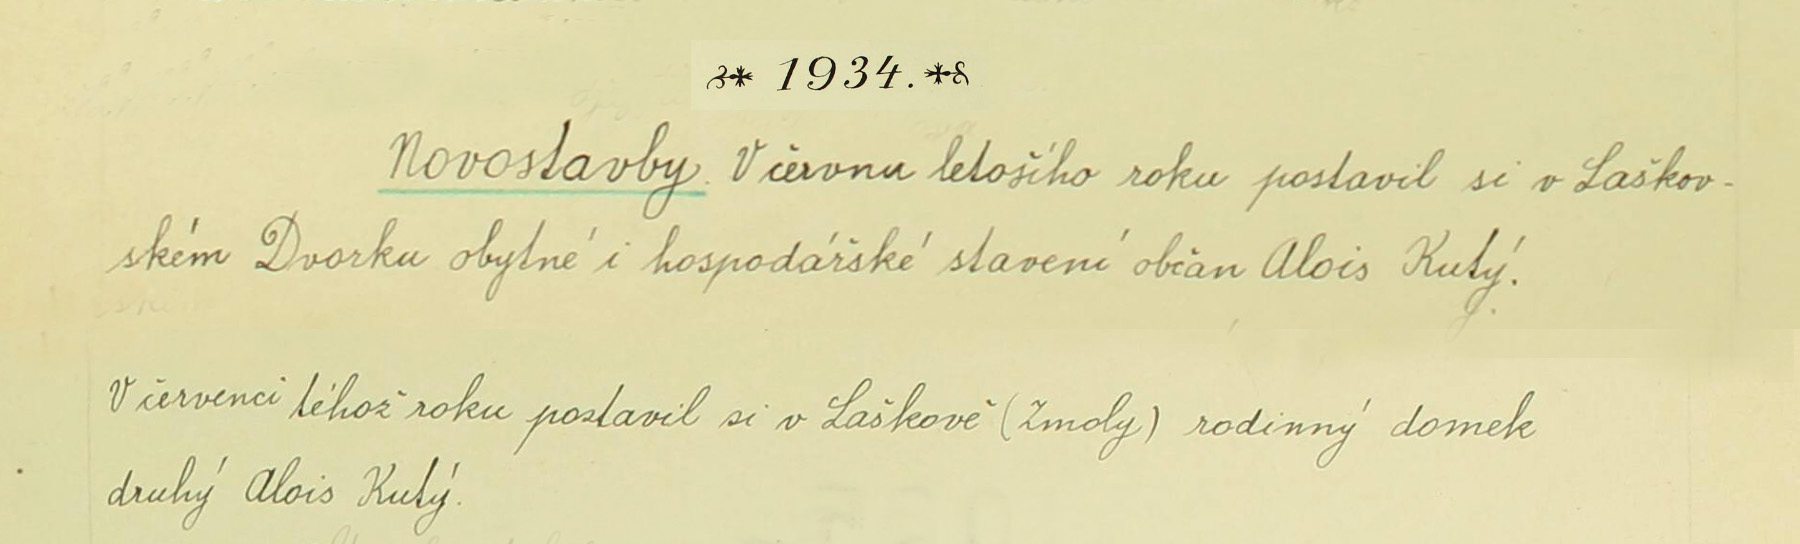 1934.
Novostavby. V červnu letošího roku postavil si v Laškov-
ském Dvorku obytné i hospodářské stavení občan Alois Kutý.
V červenci téhož roku postavil si v Laškově (Zmoly) rodinný domek
druhý Alois Kutý.